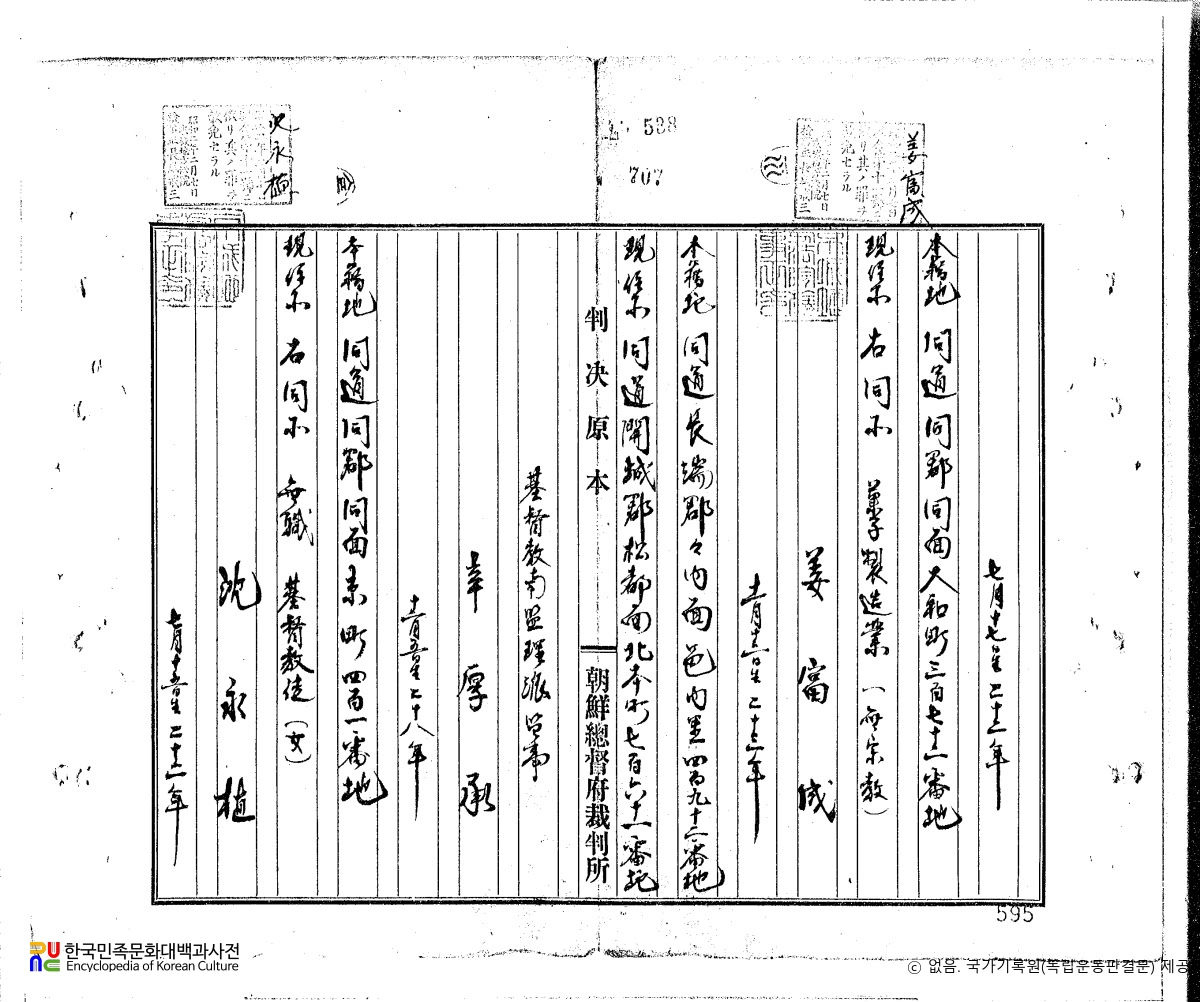 538
707
姜富成
沈永植
七月十七日生 二十三年
本籍地 同道同郡同面大和町三百七十一番地
現住所 右同所 菓子製造業 (無宗教)
姜富成
二十三年
本籍地 同道長端郡々内面邑内里四百九十二番地
現住所 同道開城郡松都面北本町七百六十一番地
判決原本
朝鮮總督府裁判所
基督教南監理派
厚承
二十八年
本籍地 同道同郡同面京町四百一番地
現住所 右同所 無職 基督教徒(女)
沈永植
595
한국민족문화대백과사전
Encyclopedia of Korean Culture
ⓒ 없음. 국가기록원(독립운동판결문) 제공